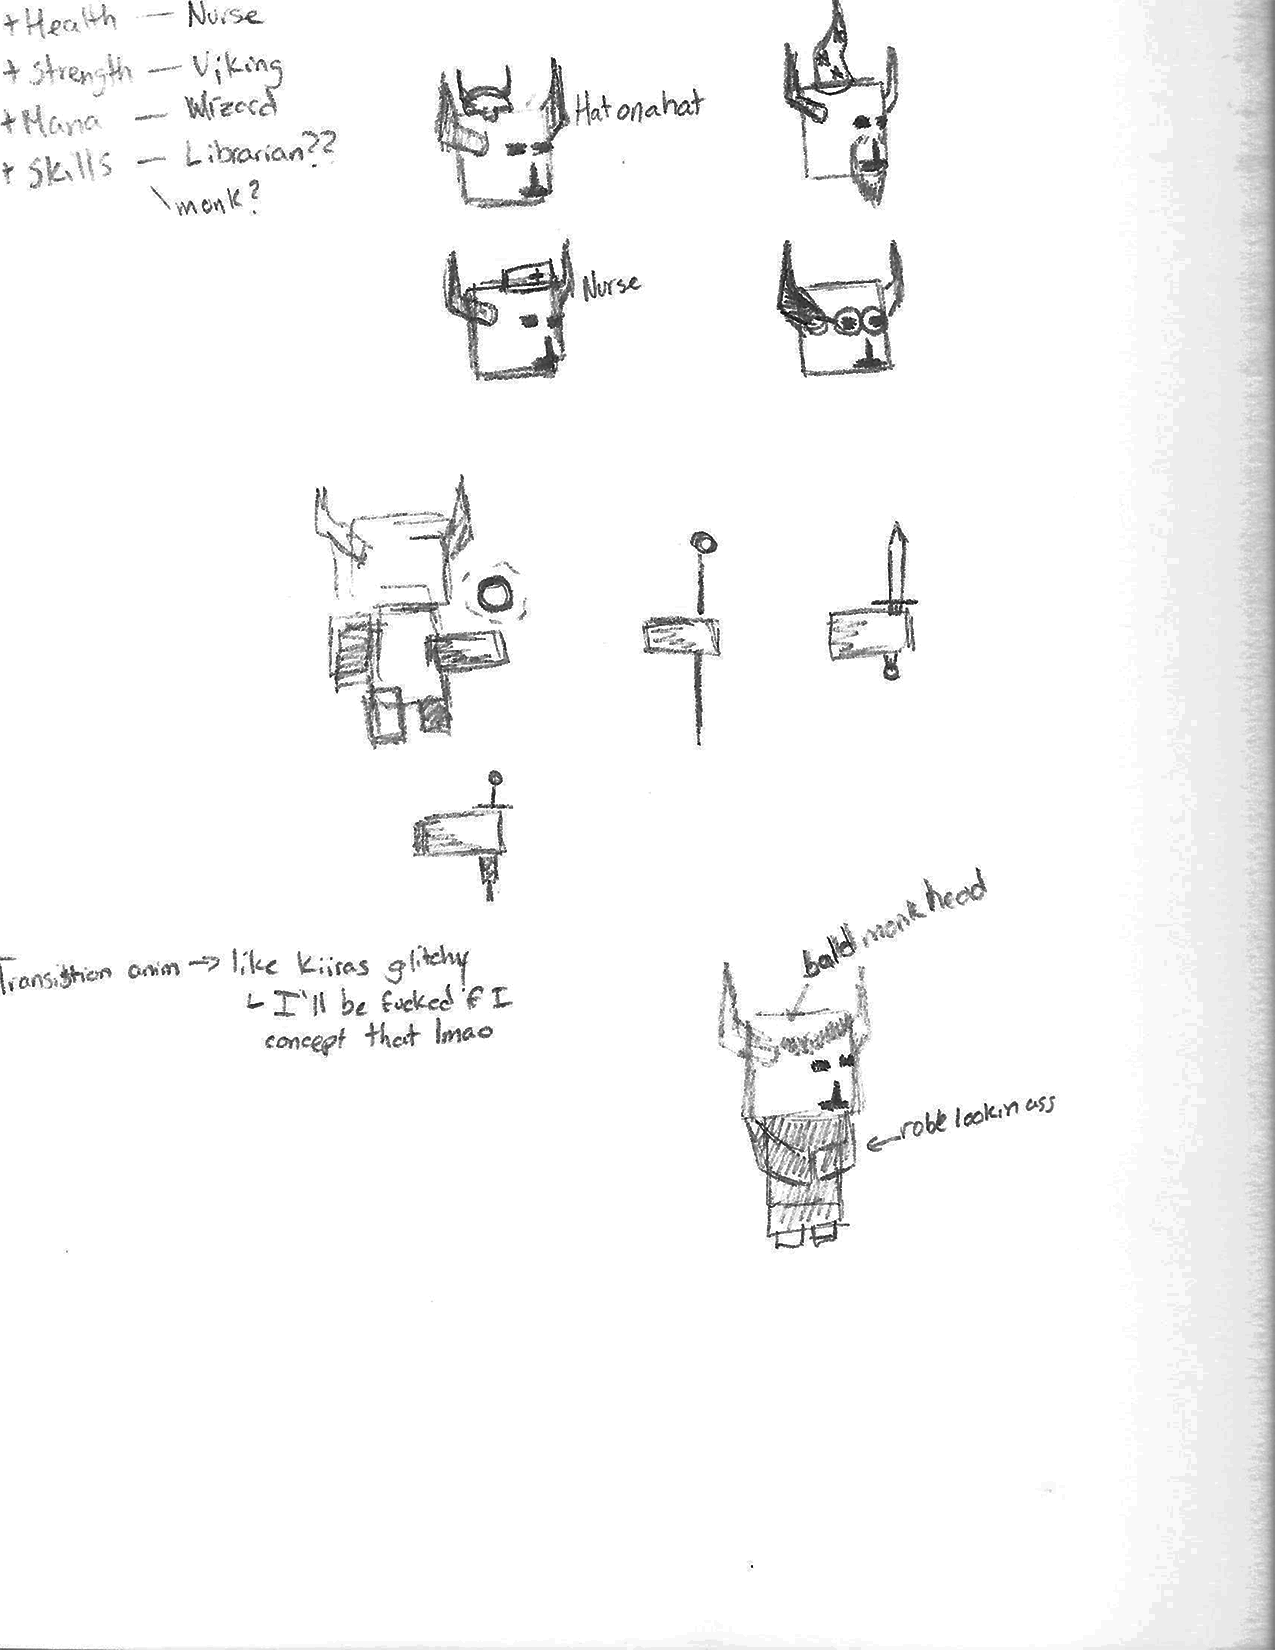 +Health — Nurse
+ Strength — Viking
+Mana — Wizard
+ Skills — Librarian??
\monk?
Hat on a hat
Nurse
bald monk head
Transistion anim -> like Kiiras glitchy
└ I'll be fucked if I
concept that lmao
<- robe lookin ass